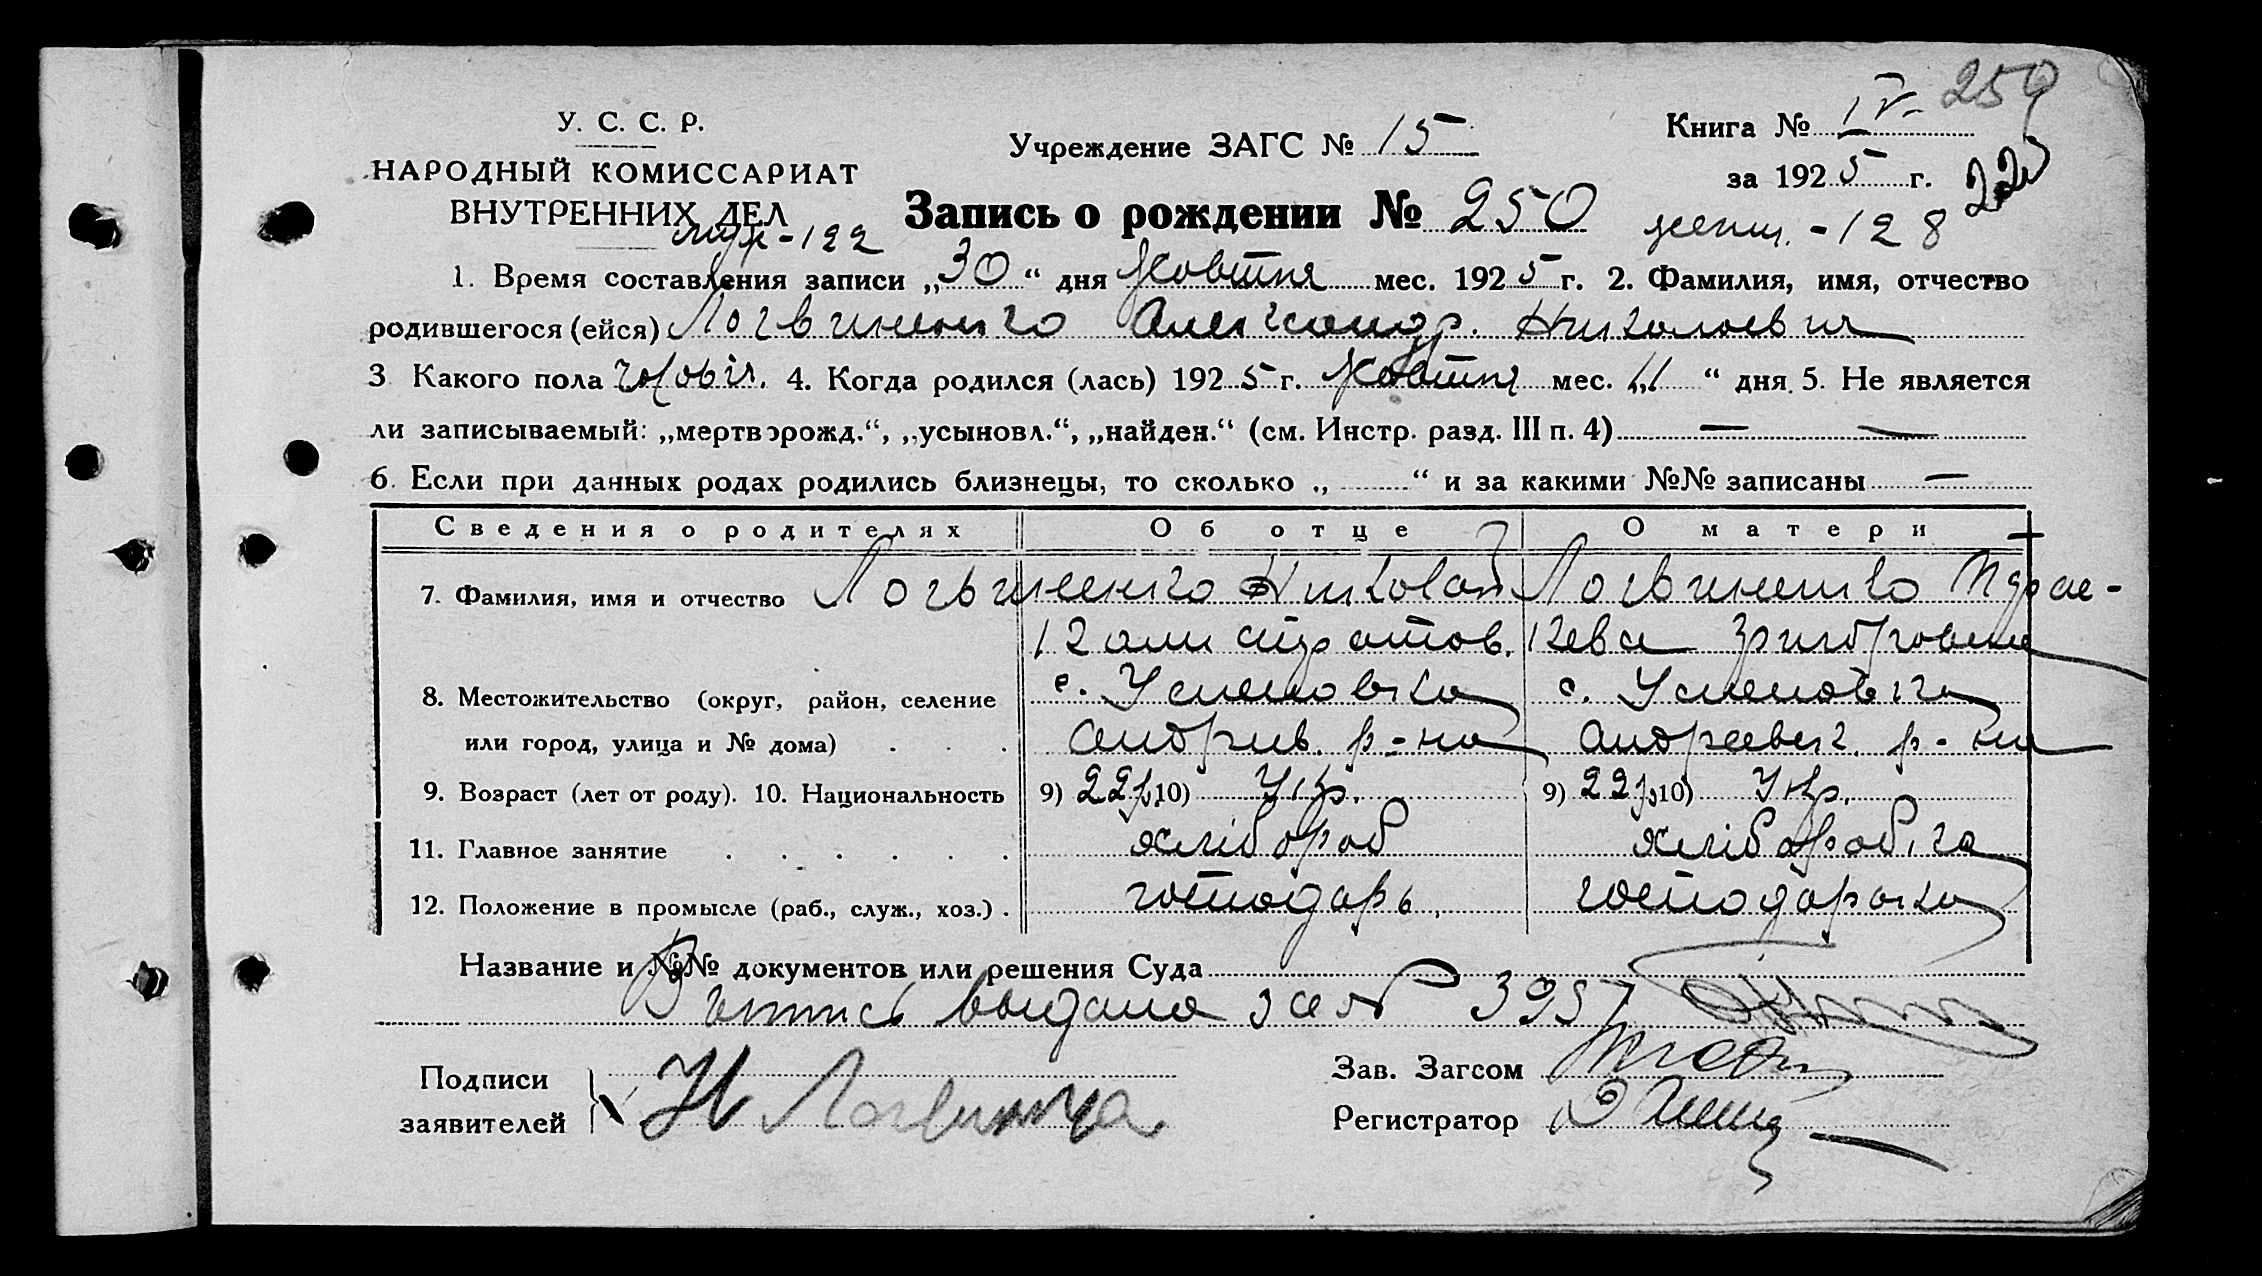 У. С. С. Р.
НАРОДНЫЙ КОМИССАРИАТ
ВНУТРЕННИХ ДЕЛ
Учреждение ЗАГС № 15
Книга № IV 259
за 1925 г. 225
Запись о рождении № 250
муж - 122 женщ. - 128
1. Время составления записи „30“ дня жовтня мес. 1925 г. 2. Фамилия, имя, отчество
родившегося (ейся) Логвиненко Александр. Николаевич
3 Какого пола чолов. 4. Когда родился (лась) 1925 г. жовтня мес. „11“ дня 5. Не является
ли записываемый: „мертворожд.“, „усыновл.“, „найден.“ (см. Инстр. разд. III п. 4) — —
6. Если при данных родах родились близнецы, то сколько „ “ и за какими №№ записаны —
Сведения о родителях Об отце О матери
7. Фамилия, имя и отчество Логвиненко Николай Логвиненко
Григоровна
8. Местожительство (округ, район, селение с. Успеновка с. Успеновка
или город, улица и № дома) Андрив. р-на Андреевск. р-на
9. Возраст (лет от роду). 10. Национальность 9) 22 р. 10) Укр. 9) 22 р. 10) Укр.
11. Главное занятие хлібороб хліборобка
12. Положение в промысле (раб., служ., хоз.) господарь господарька
Название и №№ документов или решения Суда
Выпись выдана за № 3957
Подписи
заявителей
Н Логвинча
Зав. Загсом
Регистратор